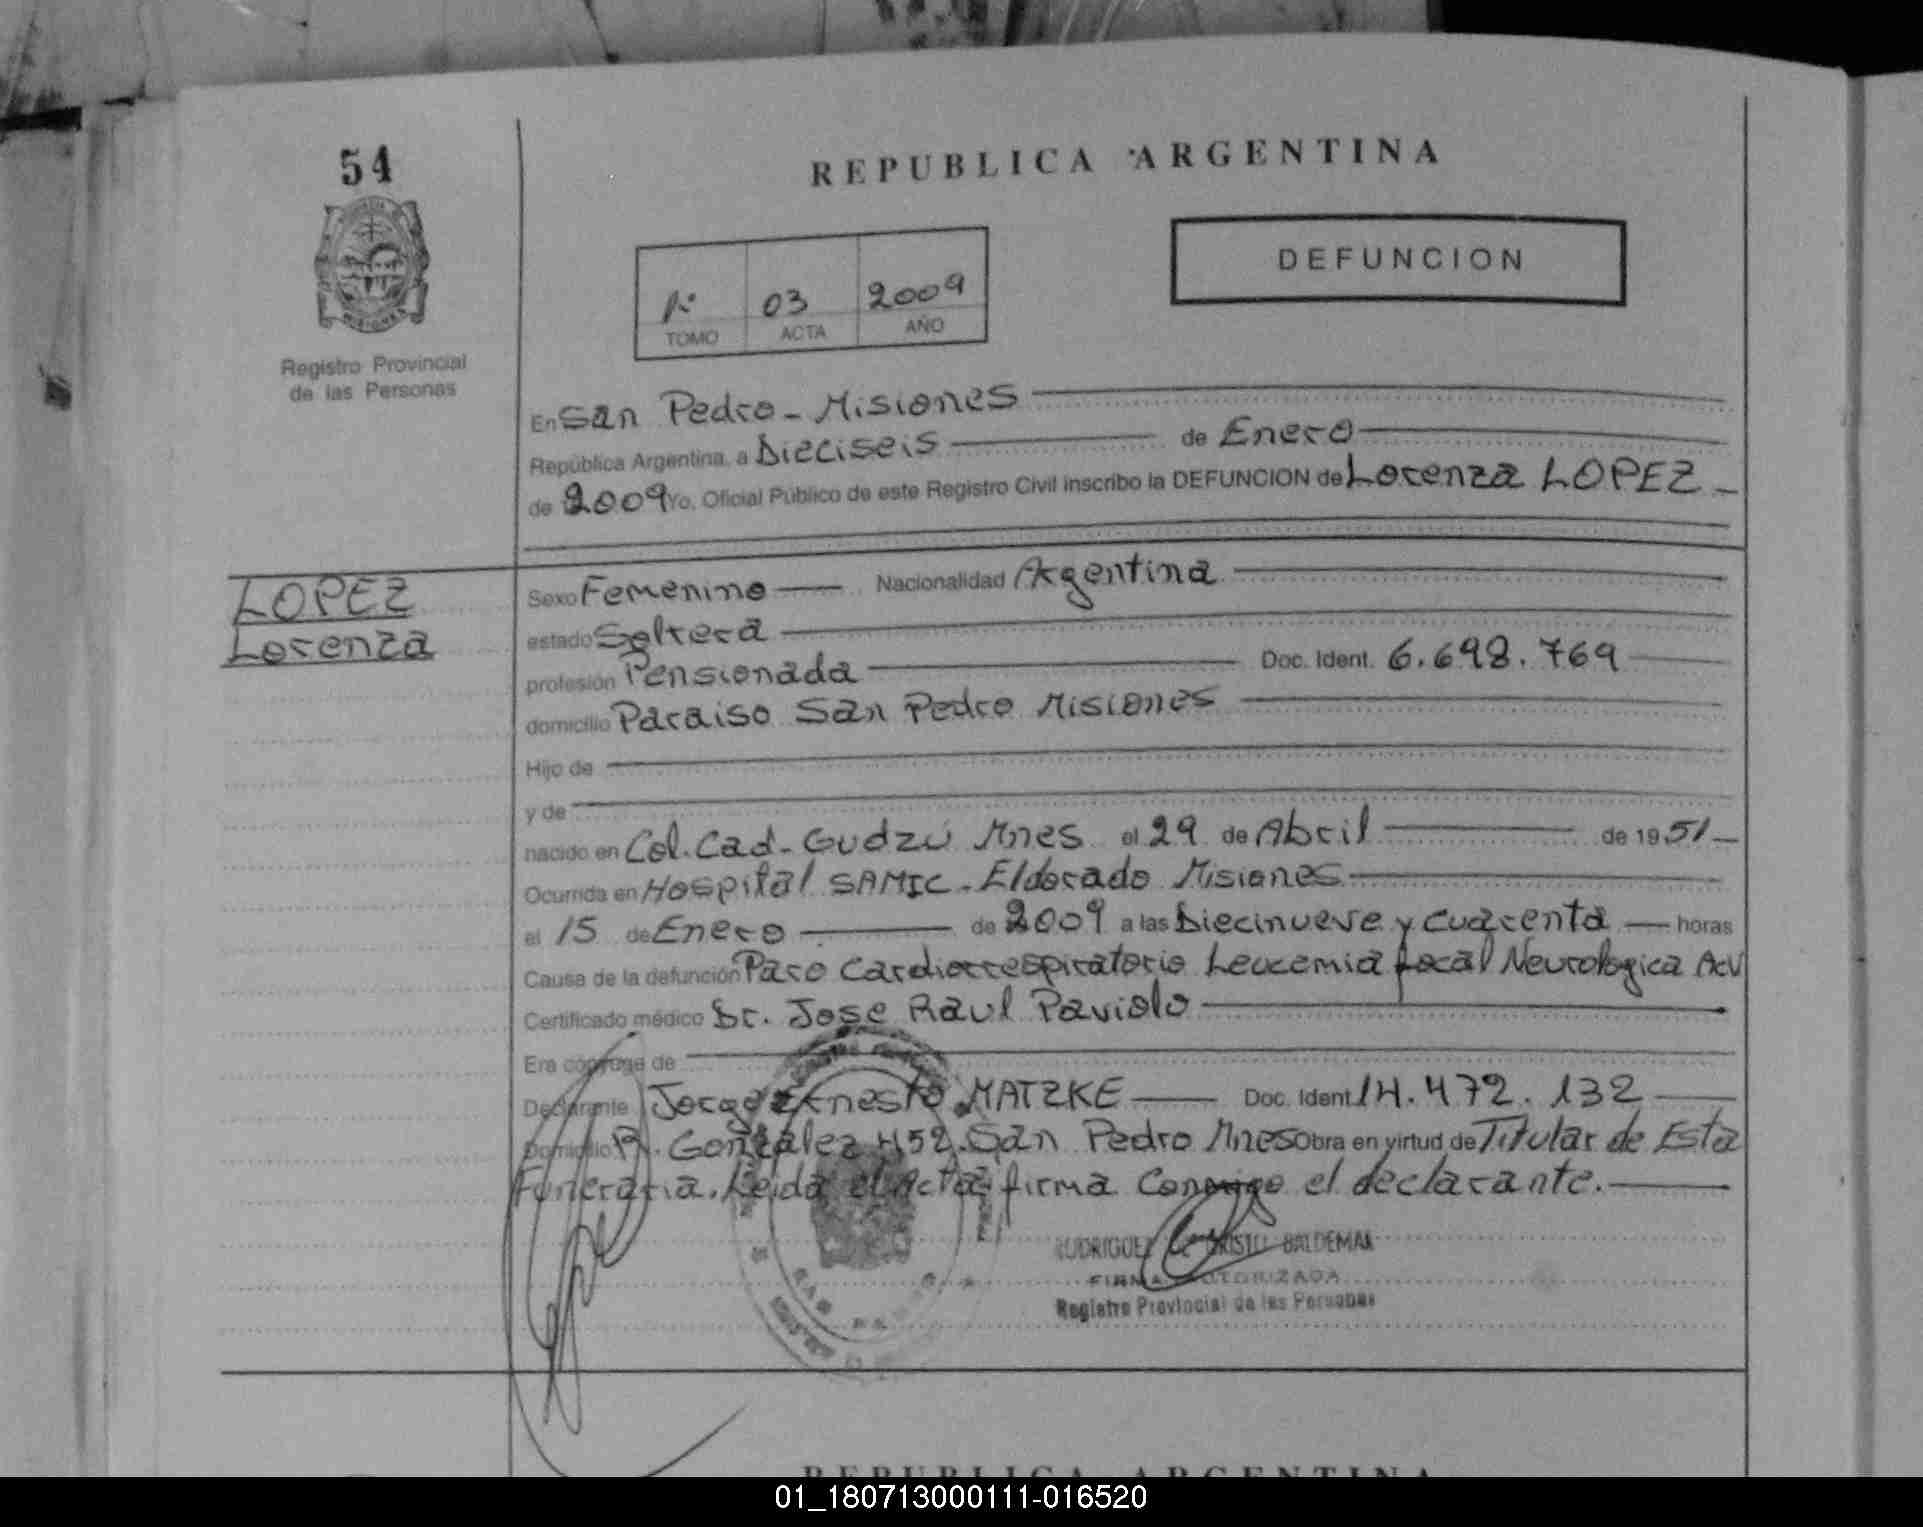 54
REPUBLICA ARGENTINA
DEFUNCION
1º 03 2009
TOMO ACTA AÑO
Registro Provincial
de las Personas
En San Pedro - Misiones
República Argentina, a Dieciseis de Enero
de 2009 Yo, Oficial Público de este Registro Civil inscribo la DEFUNCION de Lorenza LOPEZ
LOPEZ
Lorenza
Sexo Femenino Nacionalidad Argentina
estado Soltera
profesión Pensionada Doc. Ident. 6.698.769
domicilio Paraiso San Pedro Misiones
Hijo de
y de
nacido en Col. Cad. Gudzú Mnes el 29 de Abril de 1951
Ocurrida en Hospital SAMIC - Eldorado Misiones
el 15 de Enero de 2009 a las Diecinueve y cuarenta horas
Causa de la defunción Paro Cardiorrespiratorio Leucemia focal Neurologica AcV
Certificado médico Dr. Jose Raul Paviolo
Era cónyuge de
Declarante Jorge Ernesto MATZKE Doc. Ident. 14.472.132
Domicilio R. Gonzalez 452. San Pedro Mnes Obra en virtud de Titular de Esta
Funeraria. Leida el acta firma Conmigo el declarante.
RODRIGUEZ CRISTO BALDEMAR
FIRMA AUTORIZADA
Registro Provincial de las Personas
REPUBLICA ARGENTINA
01_180713000111-016520